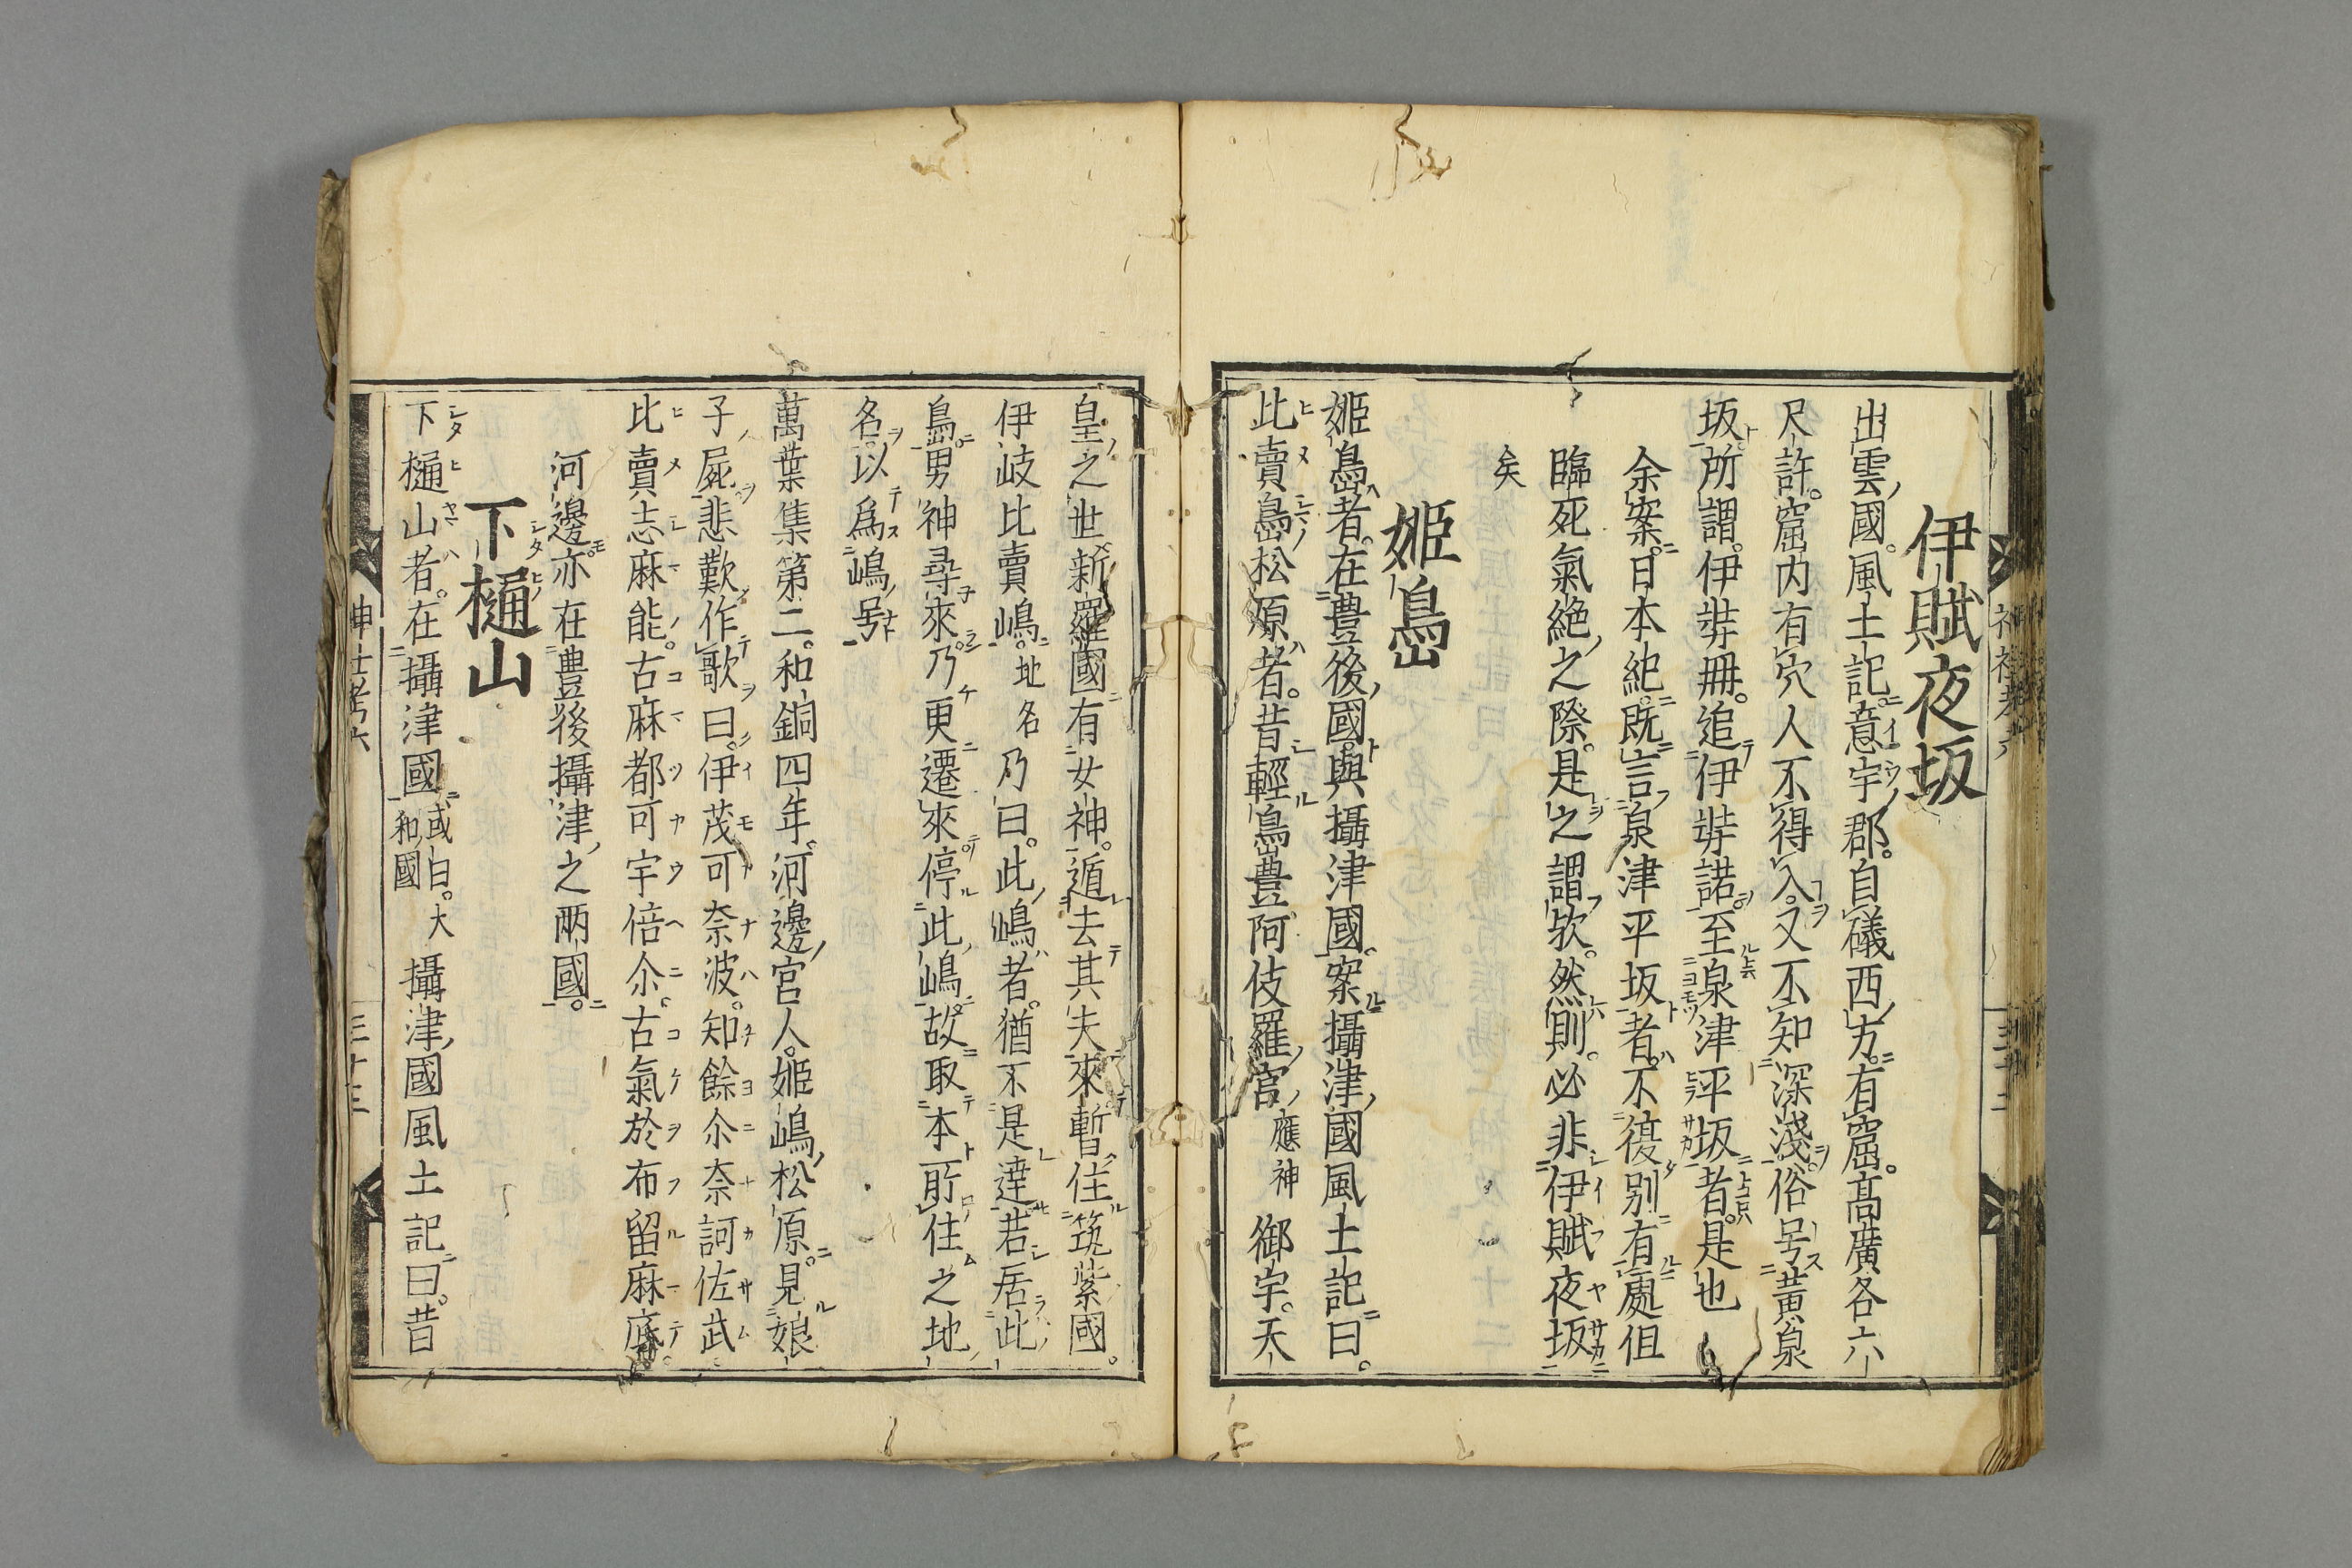 伊賦夜坂
出雲國。風土記。意宇郡。自礒西方。有窟。高廣各六
尺許。窟内有穴人不得入。又不知深淺。俗号黄泉
坂。所謂。伊弉冊。追伊弉諾。至泉津平坂者。是也
余案。日本紀。既言泉津平坂者。不復别有處但
臨死氣絶之際。是之謂欤。然則。必非伊賦夜坂
矣
姫嶌
姫嶌者。在豊後國。與攝津國。案攝津國風土記曰。
比賣嶌松原者。昔輕嶌豊阿伎羅宮應神御宇。天
皇之世新羅國有女神。遁去其夫來暫住筑紫國。
伊岐比賣嶋。地名乃曰。此嶋者。猶不是遠。若居此
嶌。男神尋來。乃更遷來停此嶋。故取本所住之地
名。以爲嶋号
萬葉集第二。和銅四年。河邊宮人。姫嶋松原。見娘
子屍悲歎作歌曰。伊茂可奈波。知餘尒奈訶佐武
比賣志麻能。古麻都可宇倍尒。古氣於布留麻底。
河邊亦在豊後攝津之兩國。
下樋山
下樋山者。在攝津國或曰。大和國攝津國風土記曰。昔
神社考六
三十三